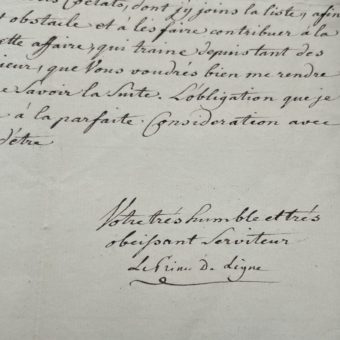 Etats, dont j'y joins la liste, afin
obstacle et à les faire contribuer à la
ette affaire, qui traine depuis tant des
ieur, que Vous voudrés bien me rendre
e Savoir la Suite. L'obligation que je
à la parfaite Consideration avec
d'être
Votre trés humble et trés
obeissant Serviteur
Le Prince De Ligne